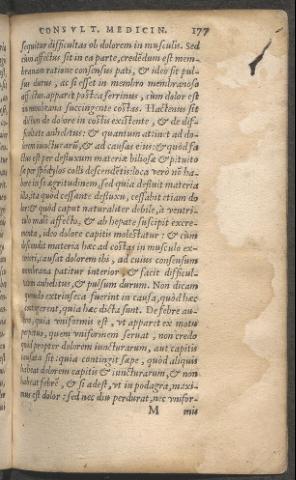 CONSVLT. MEDICIN. 177
sequitur difficultas ob dolorem in musculis. Sed
cùm affectus sit in ea parte, credẽdum est mem-
branam ratione consensus pati, & ideo sit pul-
sus durus, ac si esset in membro membranoso
affectus. apparet postea serrinus, cùm dolor est
in membrana succingente costas. Hactenus sit
dictũ de dolore in costis existente, & de dif-
ficultate anhelitus: & quantum attinet ad do-
lorem iuncturarũ, & ad causas eius: & quòd fa
ctus est per defluxum materiæ biliosæ & pituito
sæ per spõdylos colli descendẽtis: loca verò nõ ha-
bere in se ægritudinem, sed quia defluit materia
illa, ita quòd cessante defluxu, cessabit etiam do
lor: & quòd caput naturaliter debile, à ventri-
culo malè affecto, & ab hepate suscipit excre-
menta, ideo dolore capitis molestatur: & cùm
descendit materia hæc ad costas in musculo ex-
teriori, causat dolorem ibi, ad cuius consensum
membrana patitur interior, & facit difficul-
tem anhelitus, & pulsum durum. Non dicam
quando extrinseca fuerint in causa, quòd hæc
concurrerent, quia hæc dicta sunt. De febre au-
tem, quia vniformis est, vt apparet ex motu
perpetuo, quem vniformem seruat, non credo
quòd propter dolorem iuncturarum, aut capitis
causata sit: quia contingit sæpe, quòd aliquis
habeat dolorem capitis & iuncturarum, & non
habeat febrẽ, & si adest, vt in podagra, maxi-
mus est dolor: sed nec diu perdurat, nec vnifor-
M mis